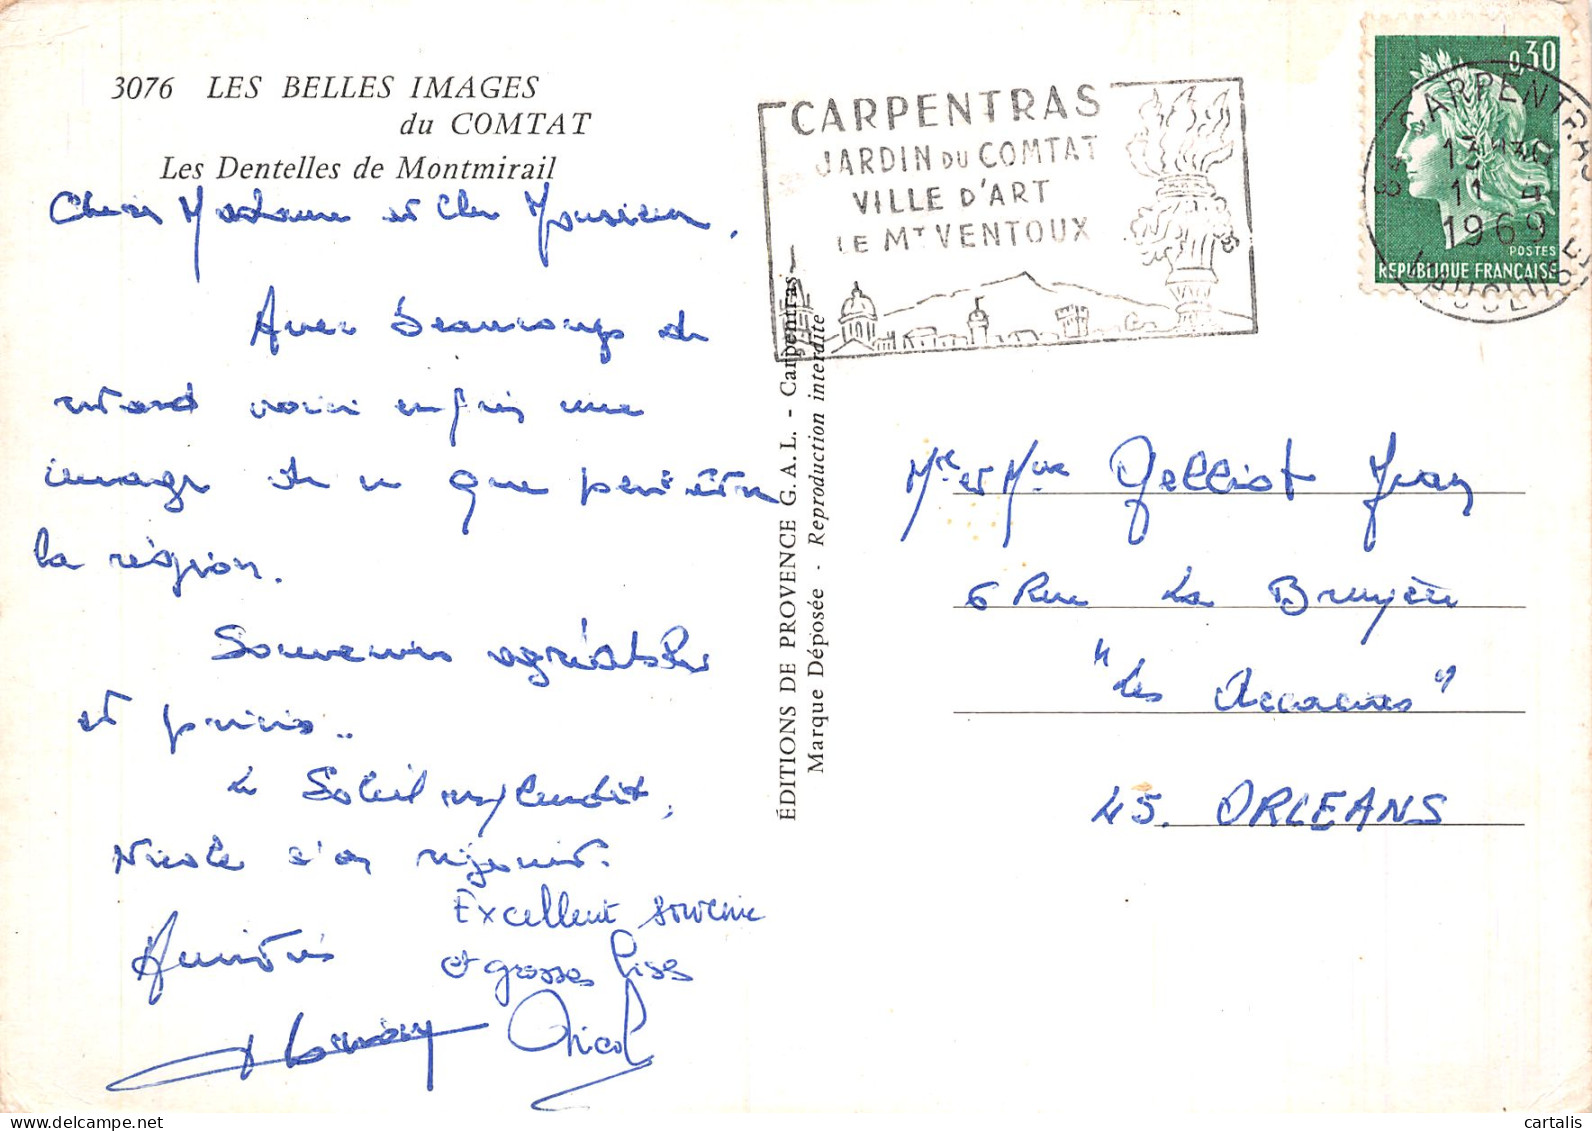 3076 LES BELLES IMAGES
du COMTAT
Les Dentelles de Montmirail
Chère Madame et Cher Monsieur,
Avec beaucoup de
retard voici enfin une
image de ce que peut être
la région.
Souvenirs agréables
et précis..
Le Soleil resplendit,
Nicole s'en réjouit.
Amitiés
Excellent souvenir
et grosses bises
Nicole
ÉDITIONS DE PROVENCE G. A. L. - Carpentras
Marque Déposée - Reproduction interdite
CARPENTRAS
JARDIN DU COMTAT
VILLE D'ART
LE MT VENTOUX
0,30
POSTES
REPUBLIQUE FRANÇAISE
84 CARPENTRAS
11 4
1969
VAUCLUSE
Mr et Mme Gelliot Jean
6 Rue La Bruyère
"Les Accacias"
45. ORLEANS
cartalis